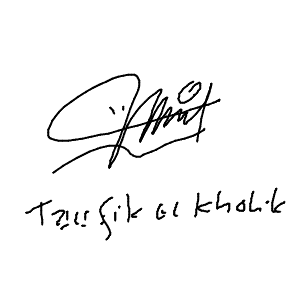 Taufik al kholik